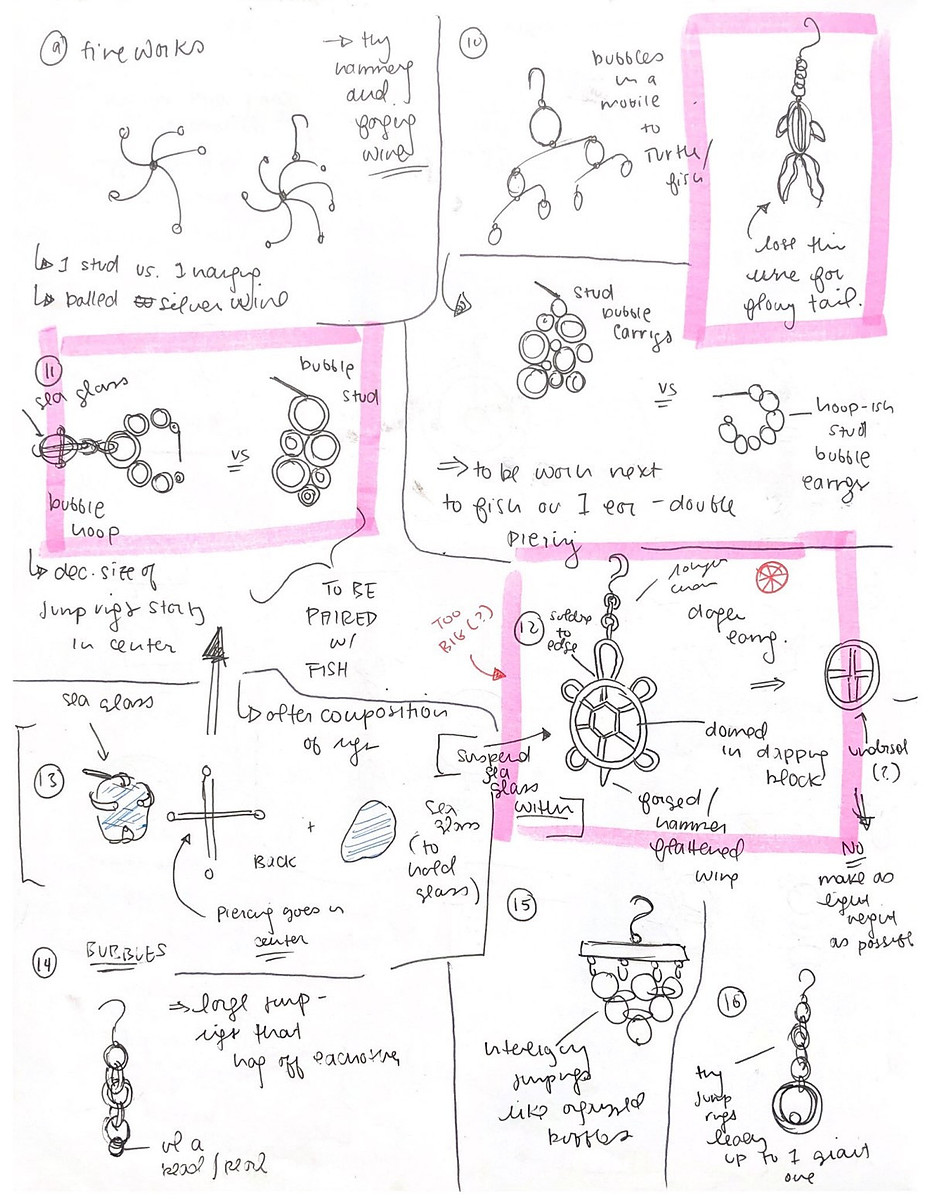 9 fireworks
→ try
hammering
and
forging
wire
↳ 1 stud vs. 1 hanging
↳ balled silver wire
10
bubbles
in a
mobile
to
Turtle/
fish
wire for
tail.
stud
bubble
earrings
vs
hoop-ish
stud
bubble
earrings
⇒ to be worn next
to fish on 1 ear - double
piercing
11
sea glass
bubble
stud
vs
bubble
hoop
↳ dec. size of
jump rings starting
in center
TO BE
PAIRED
W/
FISH
12
TOO
BIG (?)
solder
to
edge
longer
chain
earring.
suspend
sea
glass
within
domed
in dapping
block
forged/
hammer
flattened
wire
underside
(?)
NO
make as
light
weight
as possible
sea glass
13
↳ after composition
of rings
+
Back
sea
glass
(to
hold
glass)
Piercing goes in
center
14 BUBBLES
⇒ large jump-
rings that
hang off eachother
w/ a
bead/pearl
15
interlocking
jumprings
like
bubbles
16
try
jump
rings
leading
up to 1 giant
one